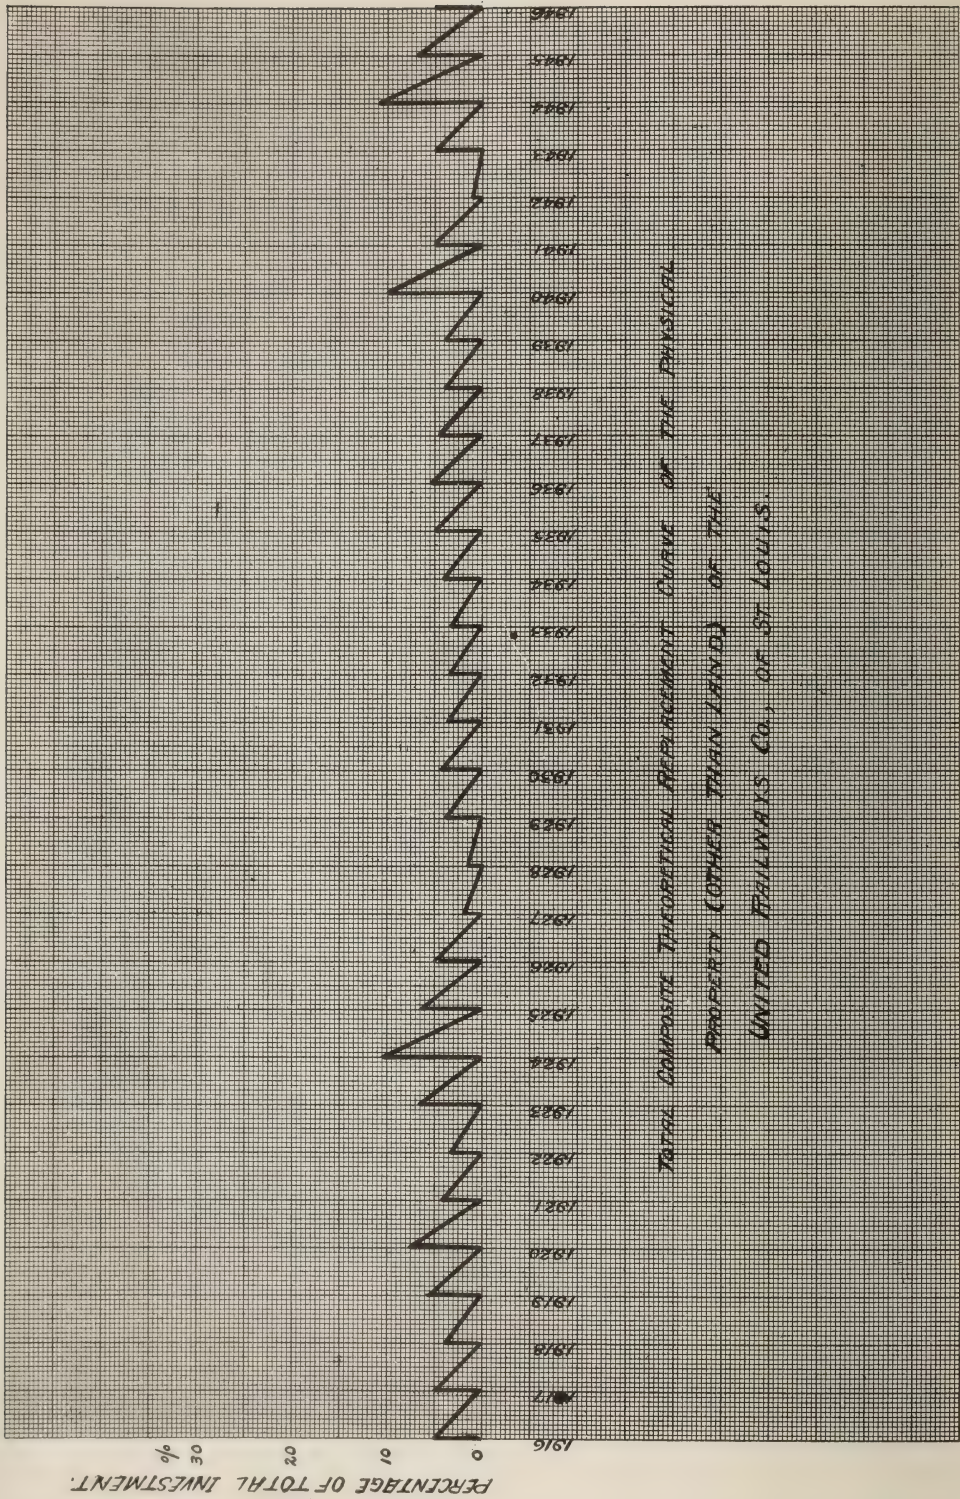 PERCENTAGE OF TOTAL INVESTMENT.
%
30
20
10
0
1916
1918
1919
1920
1921
1922
1923
1924
1925
1926
1927
1928
1929
1930
1931
1932
1933
1934
1935
1936
1937
1938
1939
1940
1941
1942
1943
1944
1945
1946
TOTAL COMPOSITE THEORETICAL REPLACEMENT CURVE OF THE PHYSICAL
PROPERTY (OTHER THAN LAND) OF THE
UNITED RAILWAYS CO., OF ST LOUIS.